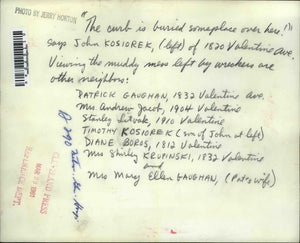 PHOTO BY JERRY HORTON
"The curb is buried someplace over here!"
says John KOSIOREK, (left) of 1820 Valentine Ave.
Viewing the muddy mess left by wreckers are
other neighbors:
PATRICK GAUGHAN, 1832 Valentine Ave.
Mrs. Andrew Jacob, 1904 Valentine
Stanley Litvak, 1910 Valentine
TIMOTHY KOSIOREK (son of John at left)
DIANE BOROS, 1812 Valentine
Mrs Shirley KRUPINSKI, 1832 Valentine
and
Mrs Mary Ellen GAUGHAN, (Pat's wife)
CLEVELAND PRESS
MAR 1981
REFERENCE DEPT.